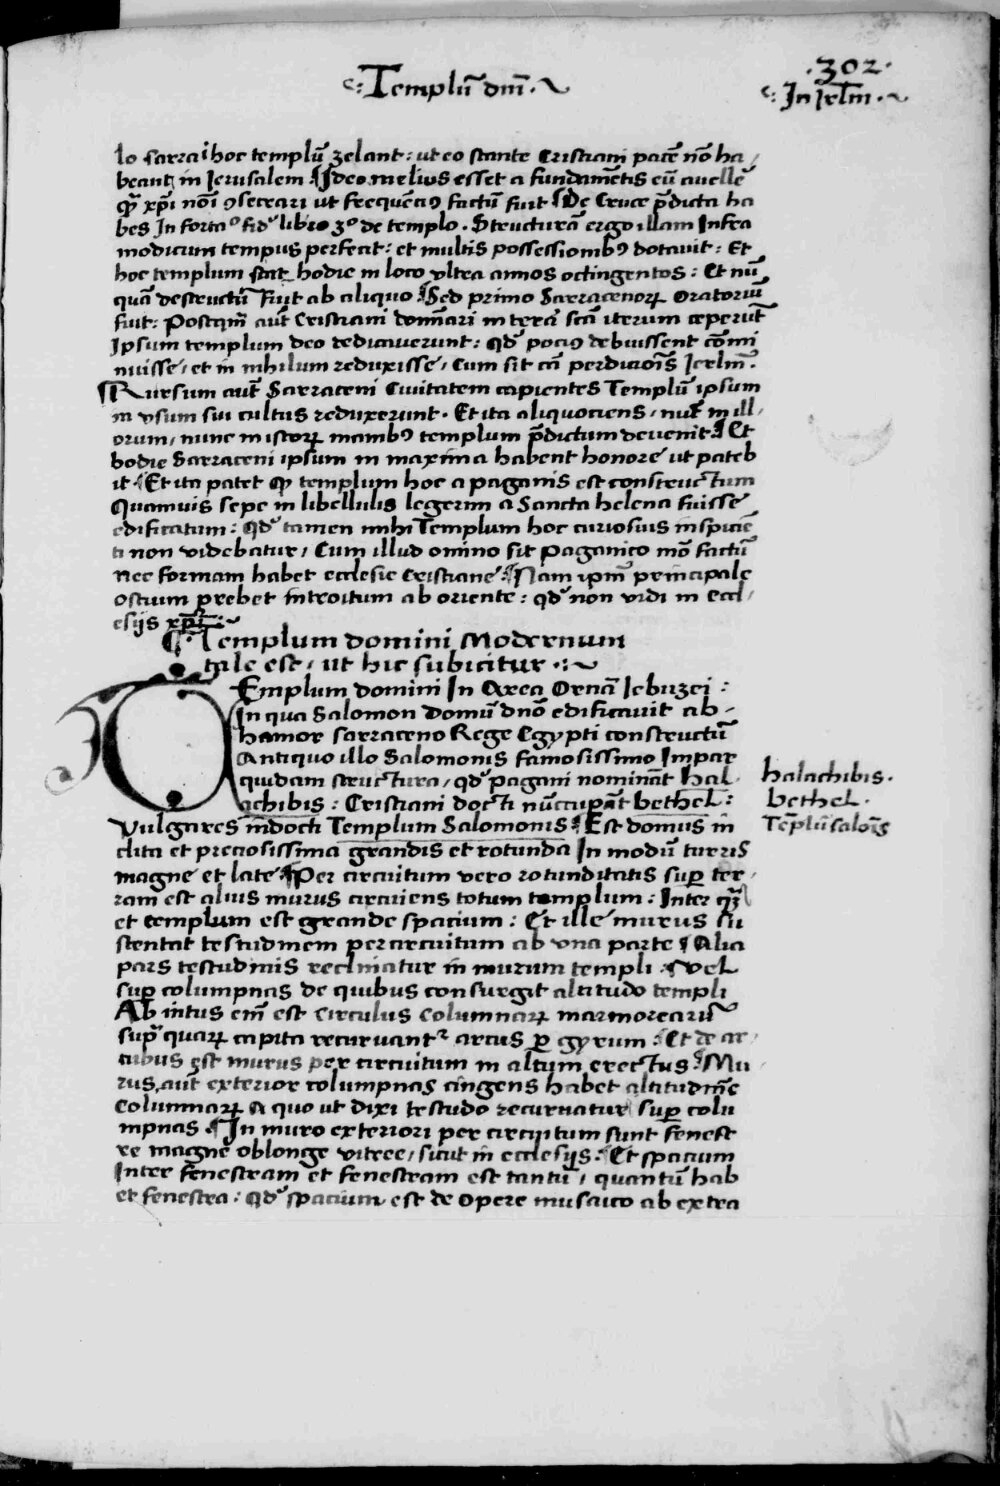 ·302·
Templū dn̄i
In Jrl̄m
lo sarrai hoc templū zelant: ut eo stante Cristiani pacē nō ha
beant in Jerusalem ¶ Ideo melius esset a fundamētis eū auellē
qꝫ xp̄i noī ꝯsecrari ut frequēcius factū fuit ¶ De Cruce p̄dicta ha
bes In fortaº fidͥ libro 3º de templo. Structurā ergo illam Infra
modicum tempus perfecit: et multis possessiombꝯ dotauit: Et
hoc templum stat hodie in loco vltra annos octingentos: Et nū
quā destructū fuit ab aliquo ¶ Sed primo Sarracenoꝝ Oratoriū
fuit: Postqm̄ aut̄ Cristiani domnari in terā scā iterum ceperūt
Ipsum templum deo dedicauerunt: qd̓ pociꝯ debuissent cōmi
nuisse, et in nihilum reduxisse, Cum sit cā perdicioīs Jerl̄m
Rursum aut̄ Sarraceni Ciuitatem capientes Templū ipsum
in vsum sui cultus reduxerunt. Et ita aliquociens, nūc in ill
orum, nunc in istoꝝ manibꝯ templum p̄dictum deuenit ¶ Et
hodie Sarraceni ipsum in maxima habent honore ut pateb
it ¶ Et ita patet qꝫ templum hoc a paganis est constructum
Quamuis sepe in libellulis legerim a Sancta helena fuisse
edificatum: qd̓ tamen mihi Templum hoc curiosius inspiciē
ti non videbatur, Cum illud omino sit Paganico mō factū
Nec formam habet ecclesie Cristiane ¶ Nam ipm̄ principale
Ostium prebet introitum ab oriente: qd̓ non vidi in eccl
esijs xp̄i:
¶ Templum domini Modernum
tale est, ut hic subicitur
TEmplum domini In Area Ornā Jebuzei:
In qua Salomon Domū dnō edificauit ab
hamor sarraceno Rege Egypti constructū
Antiquo illo Salomonis famosissimo Impar
quidam structura, qd̓ pagani nomināt hal
achibis: Cristiani docti nūcupāt bethel:
Vulgares indocti Templum Salomonis ¶ Est domus in
clita et preciosissima grandis et rotunda In modū turris
magne et late ¶ Per circuitum vero rotunditatis suꝑ ter
ram est alius murus circuiens totum templum: Inter qͫ
et templum est grande spacium: Et ille murus su
stentat testudinem per circuitum ab vna parte ¶ Alia
pars testudinis reclinatur in murum templi. Vel
suꝑ columpnas de quibus consurgit altitudo templi
Ab intus em̄ est Circulus Columnaꝝ marmorearū
supͣ quaꝝ capita recuruantᷣ arcus ꝑ gyrum ¶ Et de ar
cubus est murus per circuitum in altum erectus ¶ Mu
rus aut̄ exterior columpnas cingens habet altitudinē
Columnaꝝ A quo ut dixi testudo recuruatur suꝑ colu
mpnas ¶ In muro exteriori per circuitum sunt fenest
re magne oblonge vitree, sicut in ecclesijs: Et spacium
Inter fenestram et fenestram est tantū, quantū hab
et fenestra: qd̓ spacium est de opere musaico ab extra
halachibis.
bethel.
Tēplū salōis